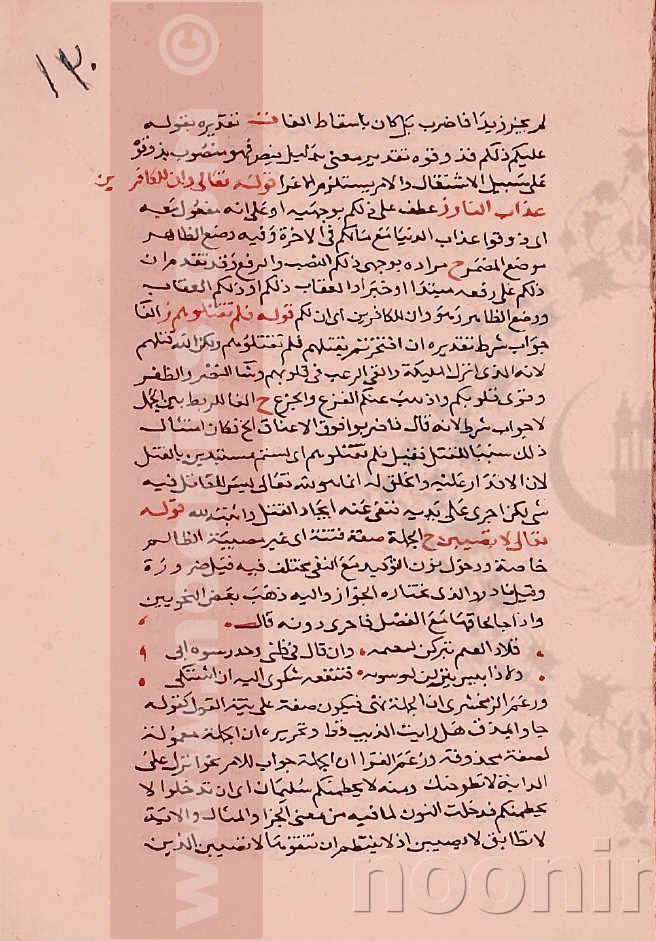 ١٣٠
لم يجز زيدا فاضرب بل كان باسقاط الفا ف تقديره بقوله
عليكم ذلكم فذوقوه تقدير معنى بدليل فهو منصوب بذوقوا
على سبيل الاشتغال والامر يستلزم الاغرا قوله تعالى وان للكافرين
عذاب النار ز عطف على ذلكم بوجهيه او على انه مفعول معه
اى ذوقوا عذاب الدنيا مع مالكم فى الاخرة وفيه وضع الظاهر
موضع المضمر ح مراده بوجهى ذلكم النصب والرفع وقد تقدم ان
ذلكم على رفعه مبتدا او خبر اى العقاب ذلكم او ذلكم العقاب
ووضع الظاهر وهو وان للكافرين اى ان لكم قوله فلم تقتلوهم ز الفا
جواب شرط تقديره ان افتخرتم بقتلهم فلم تقتلوهم ولكن الله قتلهم
لانه الذى انزل المليكة والقى الرعب فى قلوبهم وشا النصر والظفر
وقوى قلوبكم واذهب عنكم الفزع والجزع ح الفا للربط بين الجمل
لا جواب شرط لانه قال فاضربوا فوق الاعناق الخ فكان امتثال
ذلك سببا للقتل فقيل فلم تقتلوهم اى لستم مستبدين بالقتل
لان الاقدار عليه والخلق له انما هو لله تعالى ليس للقاتل فيه
شى لكن اجرى على يديه فنفى عنه ايجاد القتل واثبته لله قوله
تعالى لا تصيبن ح الجملة صفة فتنة اى غير مصيبة الظالم
خاصة ودخول نون التوكيد مع النفى مختلف فيه فقيل ضرورة
وقيل نادر والذى نختاره الجواز واليه ذهب بعض النحويين
واذا جا لحاقها مع الفصل فاحرى دونه قال
فلا ذا نعيم يتركن لنعيمه وان قال قرظنى وخذ رشوة ابى
ولا ذا بييس يتركن لبوسه فتنفعه شكوى اليه ان اشتكى
وزعم الزمخشرى ان الجملة نهى فيكون صفة على نية القول كقوله
جاوا بمذق هل رايت الذيب قط وتحريره ان الجملة معمولة
لصفة محذوفة وزعم الفرا ان الجملة جواب للامر نحو انزل على
الدابة لا تطرحنك ومنه لا يحطمنكم سليمان اى ان تدخلوا لا
يحطمنكم فدخلت النون لما فيه من معنى الجزا والمثال والاية
لا تطابق لا تصيبن اذ لا ينتظم ان تتقوا فتنة لا تصيبن الذين
www.noor
©
noonir